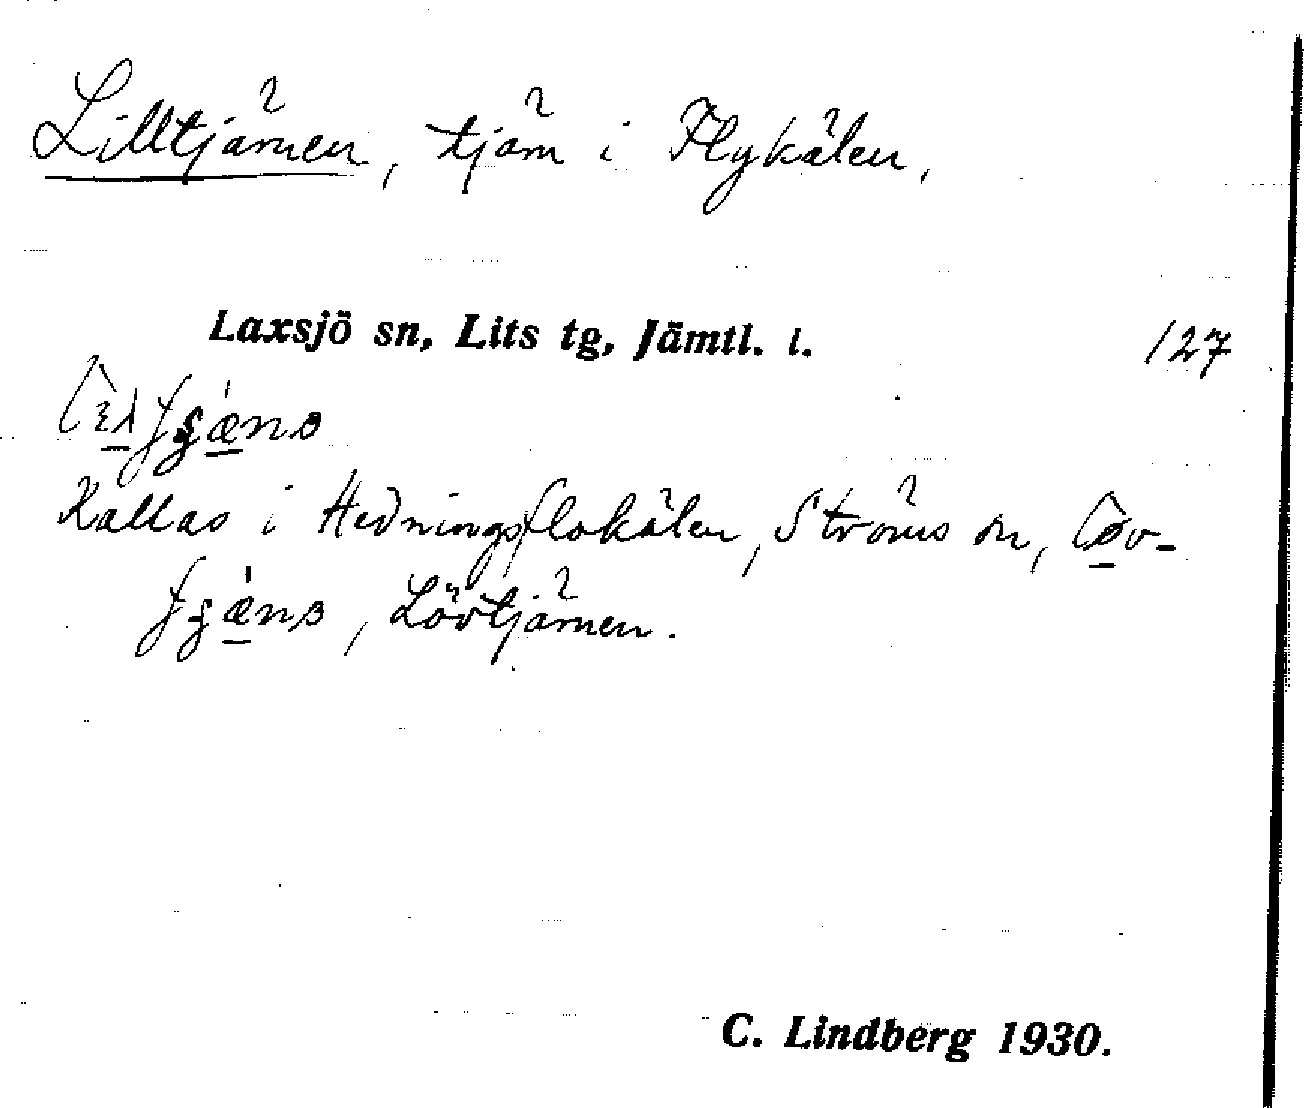 Lilltjärnen, tjärn i Flykälen.
Laxsjö sn, Lits tg, Jämtl. l.
127
Kallas i Hedningsflokälen, Ströms sn,
Lövtjärnen.
C. Lindberg 1930.